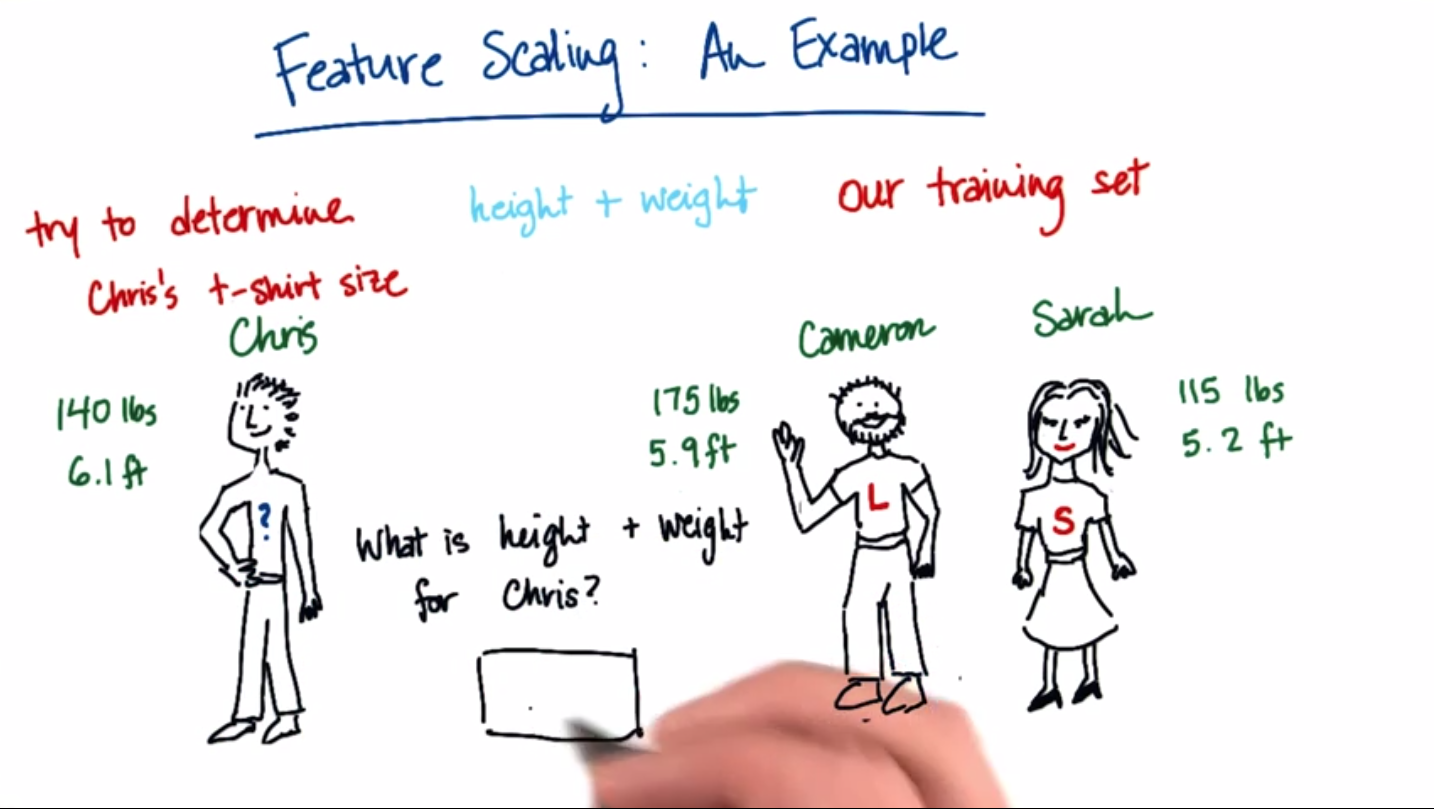 Feature Scaling: An Example
try to determine
Chris's t-shirt size
height + weight
our training set
Chris
140 lbs
6.1 ft
?
What is height + weight
for Chris?
Cameron
175 lbs
5.9 ft
L
Sarah
115 lbs
5.2 ft
S